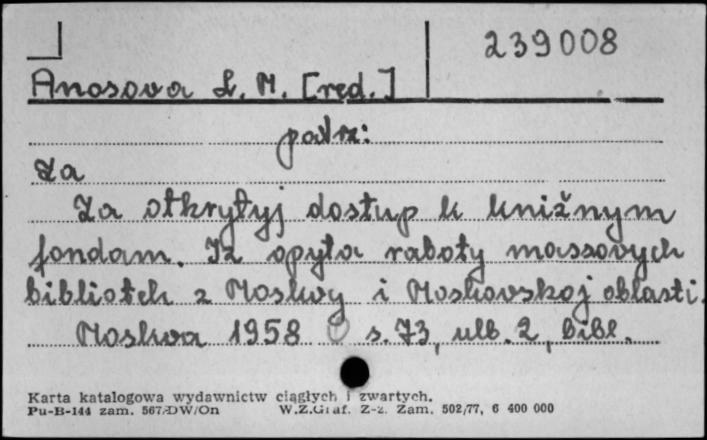 239008
Anosova L. M. [red.]
patrz:
Za
Za otkrytyj dostup k knižnym
fondam. Iz opyta raboty massovych
bibliotek z Moskvy i Moskovskoj oblasti.
Moskva 1958 s. 73, ulb. 2, bibl.
Karta katalogowa wydawnictw ciągłych i zwartych.
Pu-B-144 zam. 567/DW/On W.Z.Graf. Z-z. Zam. 502/77, 6 400 000